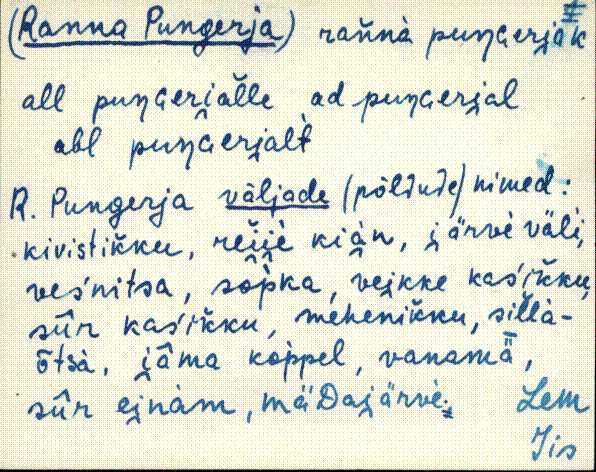 (Ranna Pungerja) rańnà puŋɢeri̯àk
all puŋɢeri̯ǎlle ad puŋɢeri̯al
abl puŋɢeri̯alt̀
R. Pungerja väljade (põldude) nimed:
kivistik̆ku, reijè ki̯àn, i̯ärvè väli,
veśnitsa, sòpka, vei̯kke kaśik̆ku,
sûr kaśik̆ku, mehenik̆ku, sillà-
õtsà, i̯âma kòppel, vanamä̂,
sûr ei̯nàm, mäDai̯ärvè.
Lem
Jis